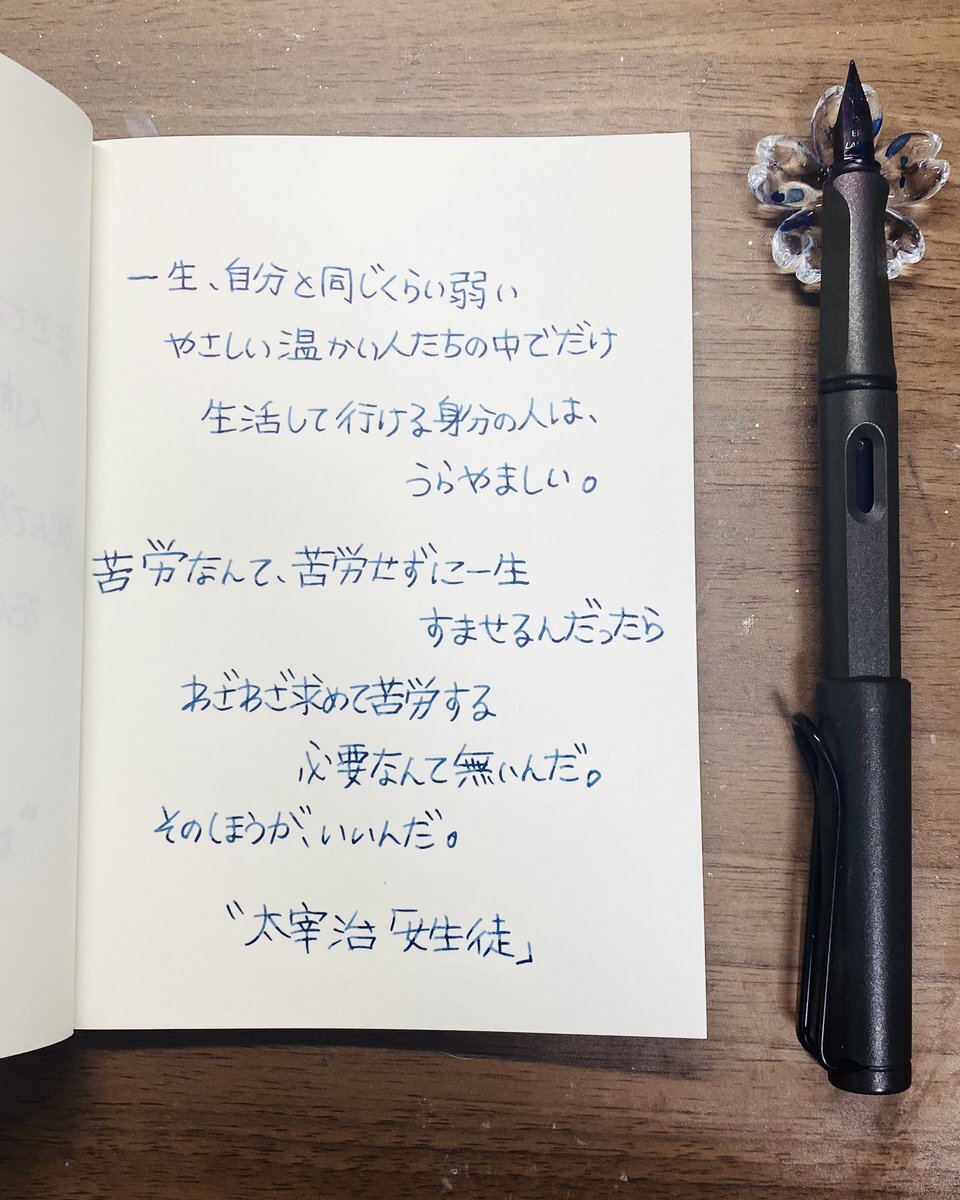 一生、自分と同じくらい弱い
やさしい温かい人たちの中でだけ
生活して行ける身分の人は、
うらやましい。
苦労なんて、苦労せずに一生
すませるんだったら
わざわざ求めて苦労する
必要なんて無いんだ。
そのほうが、いいんだ。
〝太宰治「女生徒」
EF
LAMY